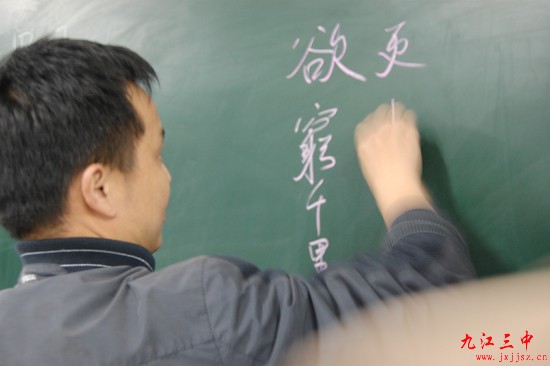 欲窮千里
更
九江三中
www.jxjjsz.cn